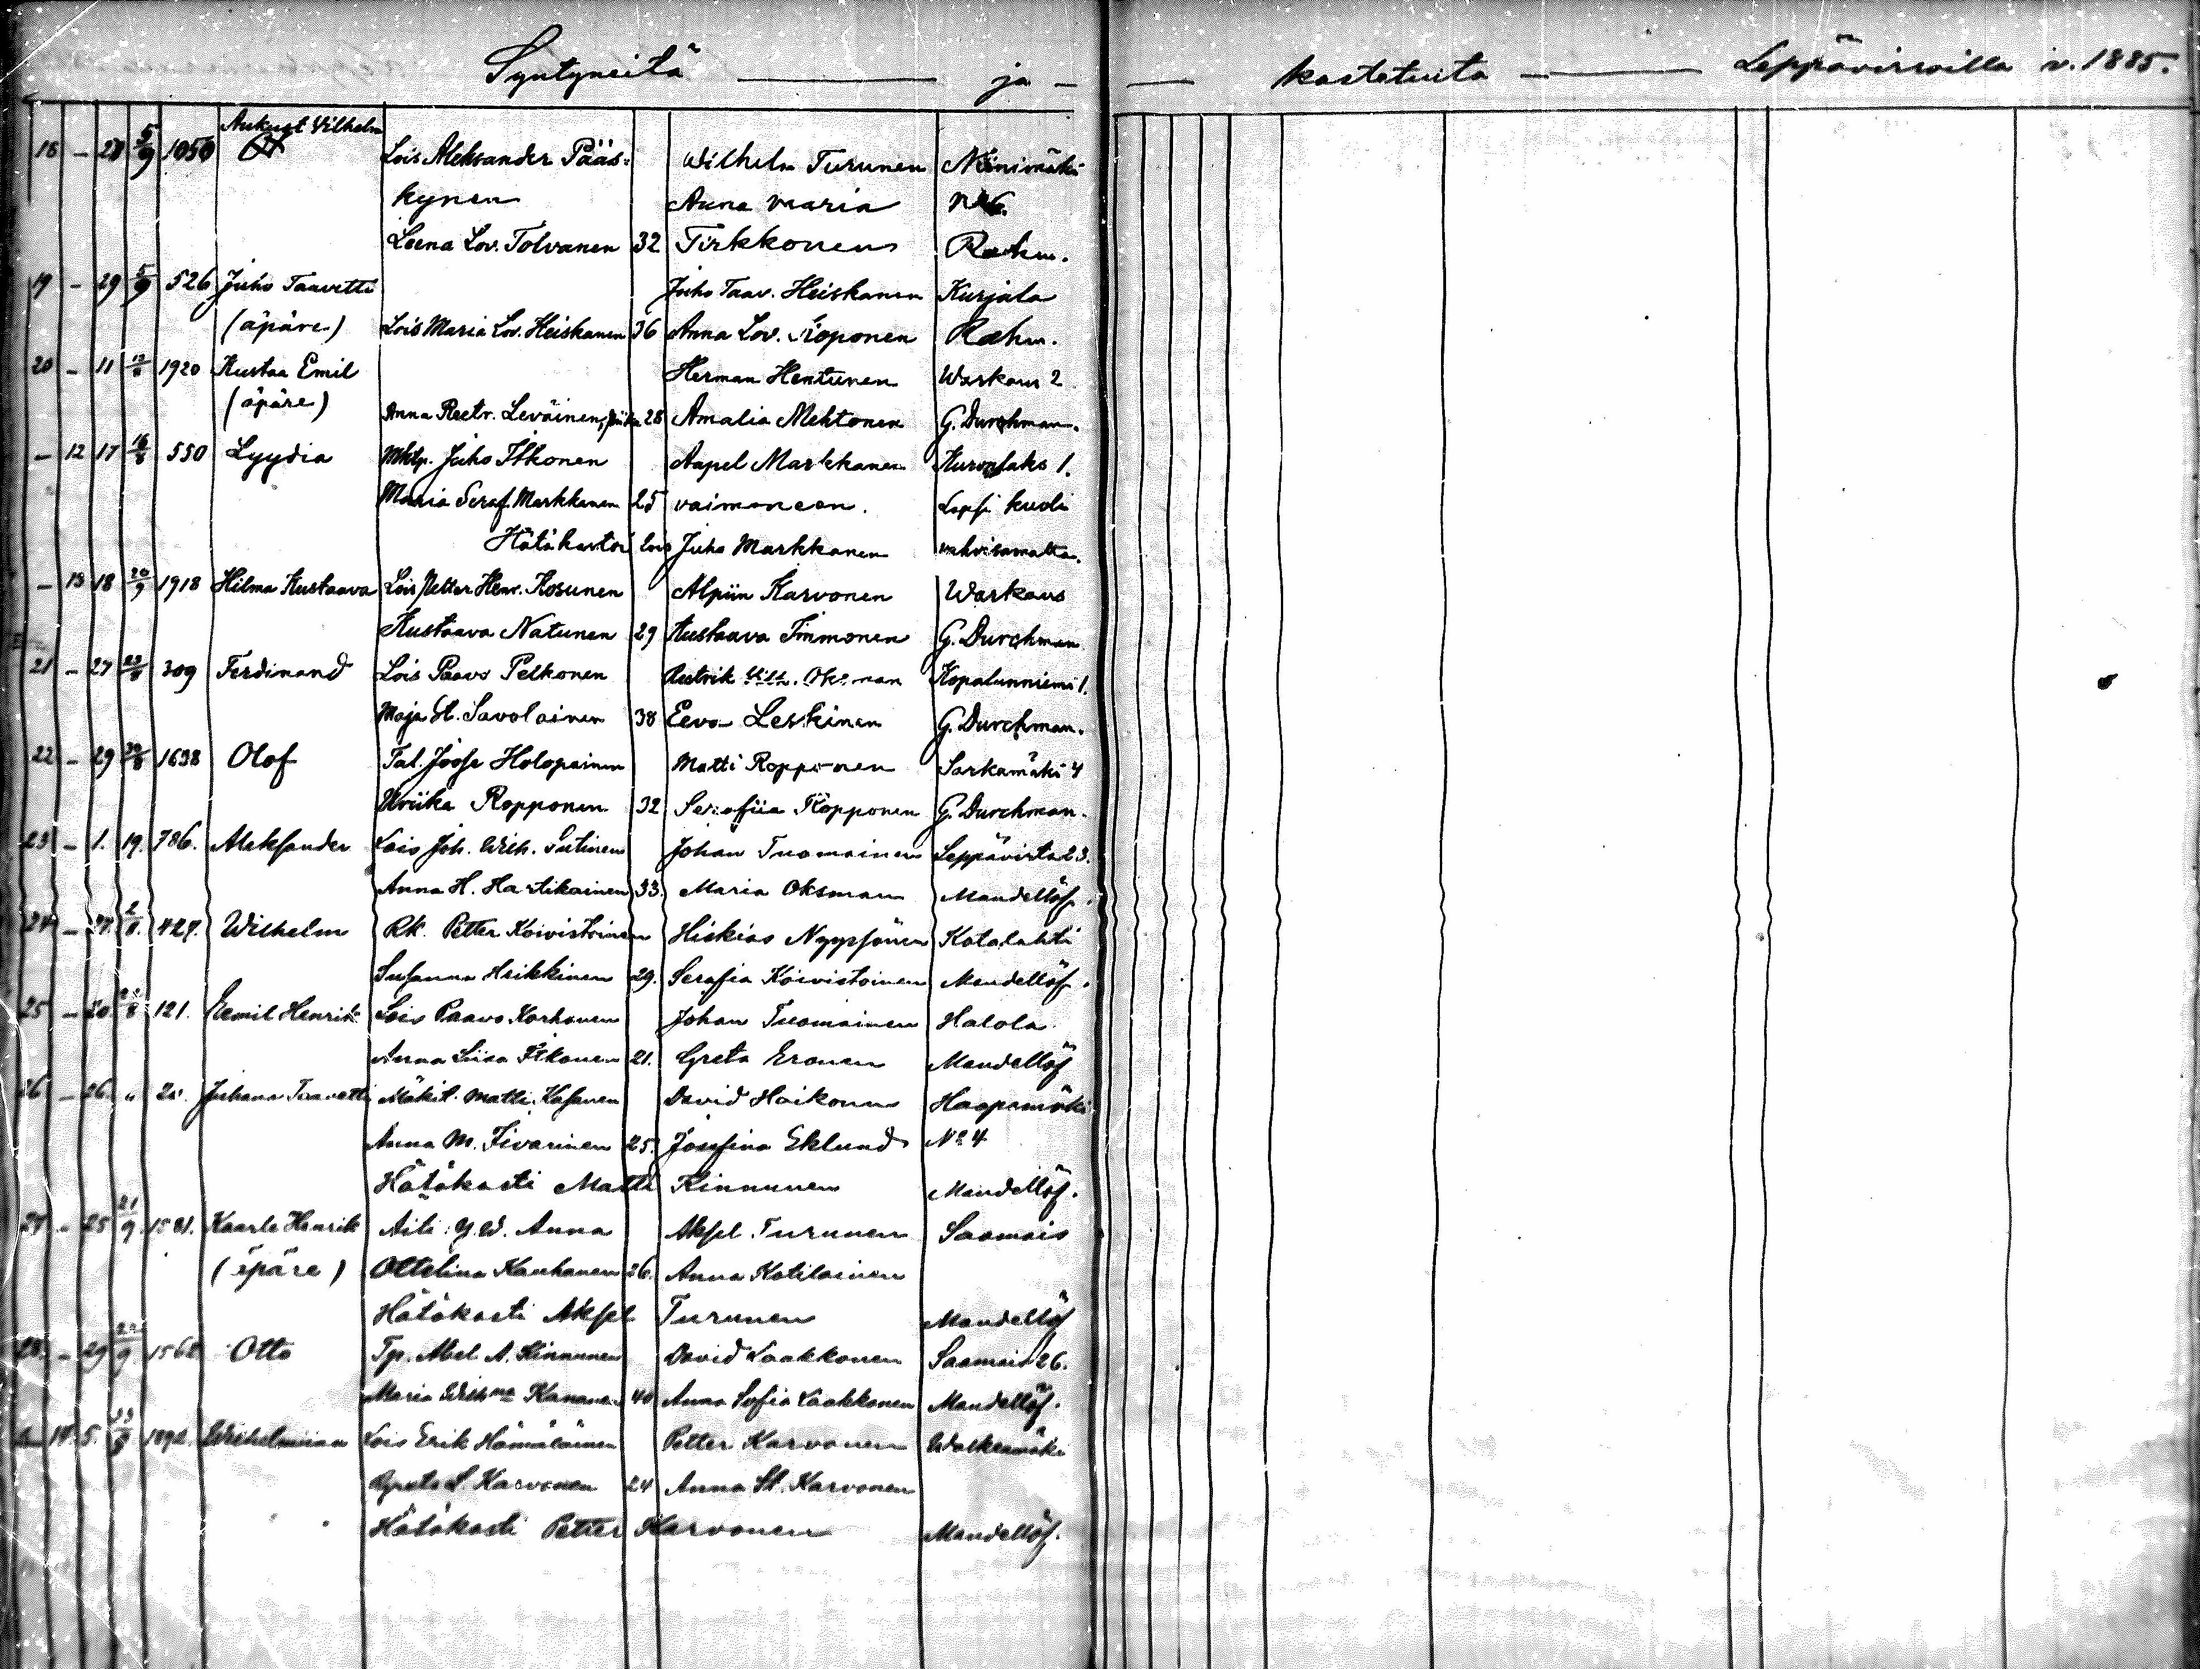 Syntyneitä — ja — kastetuita — Leppävirroilla v. 1885.
Aukust Vilhelm
18 - 28 5/9 1050 Lois Aleksander Pääs- Wilhelm Turunen Niinimäki
kynen Anna Maria N:o 6.
Leena Lov. Tolvanen 32 Tirkkonen Rahm.
19 - 29 5/9 526 Juho Taavetti Juho Taav. Heiskanen Kurjala
(äpäre) Lois Maria Lov. Heiskanen 36 Anna Lov. Koponen Rahm.
20 - 11 1920 Kustaa Emil Herman Hentunen Warkaus 2
(äpäre) Anna Reetr. Leväinen, 28 Amalia Mehtonen G. Durchman.
- 12 17 16/8 550 Lyydia Mktp. Juho Itkonen Aapel Markkanen 1.
Maria Seraf. Markkanen 25 vaimoneen. Lapsi kuoli
Hätäkastoi lois Juho Markkanen vahvistamatta.
- 13 18 20/9 1918 Hilma Kustaava Lois Petter Henr. Kosunen Alpiin Karvonen Warkaus
Kustaava Natunen 29 Kustaava Immonen G. Durchman
21 - 27 309 Ferdinand Lois Paavo Pelkonen Retrik Vilh. Oksman Kopalanniemi 1.
Maja St. Savolainen 38 Eeva Leskinen G. Durchman.
22 - 29 1638 Olof Tal. Joose Holopainen Matti Ropponen Sarkamäki 4
Ulriika Ropponen 32 Serafiia Ropponen G. Durchman.
23 - 1. 19. 786. Aleksander Lois Joh. Wilh. Sutinen Johan Tuomainen Leppävirta 23.
Anna H. Hartikainen 33. Maria Oksman Mandellöf.
24 - 427. Wilhelm Rk. Petter Koivistoinen Hiskias Nyyssönen Kotalahti
Susanna Heikkinen 29. Serafia Koivistoinen Mandellöf.
25 - 20 121. Eemil Henrik Lois Paavo Korhonen Johan Tuomainen Halola
Anna Liisa Itkonen 21. Greta Eronen Mandellöf
26 - 26. " Juhana Taavetti Mäkit. Matti Kasanen David Hoikonen Haapamäki
Anna M. Iivarinen 25. Josefina Eklund N:o 4
Hätäkasti Matti Kinnunen Mandellöf.
27 - 25 21/9 1521. Kaarle Henrik Äiti: Anna Aksel Turunen Saamais
(äpäre) Ottelina Kauhanen 26. Anna Kotilainen
Hätäkasti Aksel Turunen Mandellöf
28. - 29 22/9 1562 Otto Tp. Abel A. Kinnunen David Laakkonen Saamais 26.
Maria Wilhma Kananen 40 Anna Sofia Laakkonen Mandellöf.
14. 5. Wilhelmiina Lois Erik Hämäläinen Petter Karvonen
Greta L. Karvonen 24 Anna St. Karvonen
Hätäkasti Petter Karvonen Mandellöf.